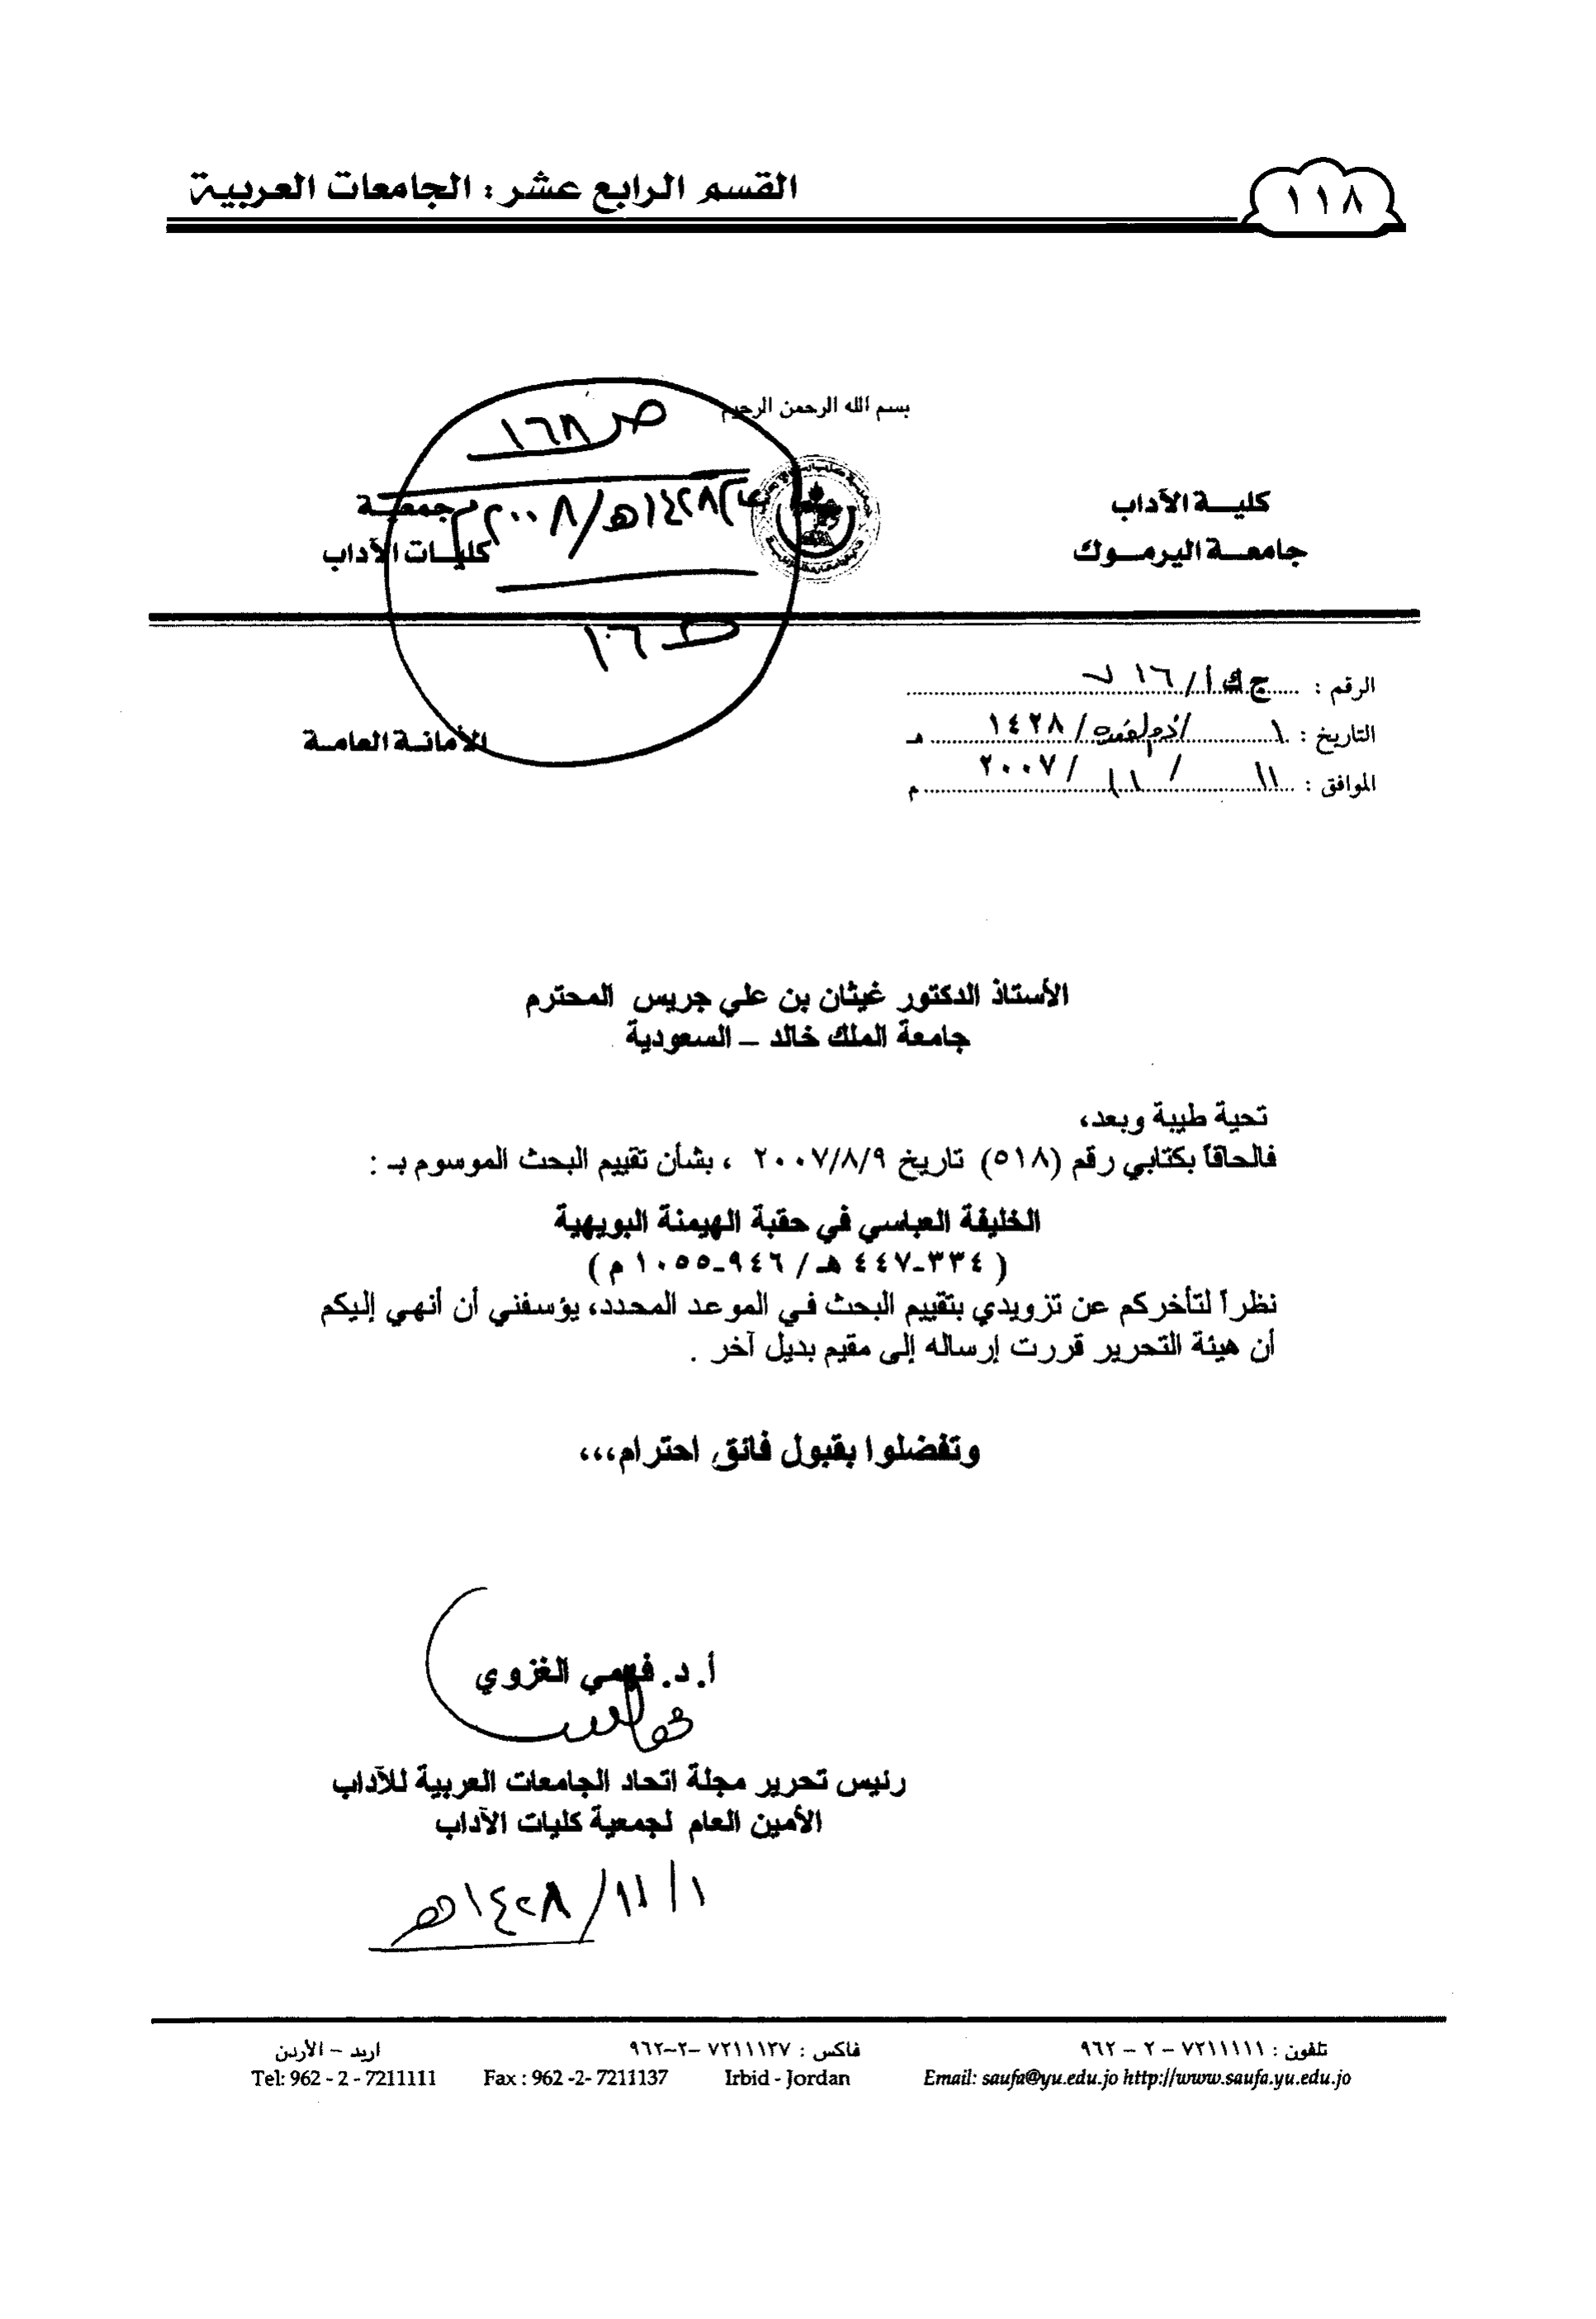 القسم الرابع عشر : الجامعات العربية
١١٨
بسم الله الرحمن الرحيم
كليـة الآداب
جامعـة اليرمـوك
جمعيـة
كليـات الآداب
ص ١٦٨
١٤٢٨هـ/٢٠٠٨م
ط ١٠٦
الأمانـة العامـة
الرقم : ج ك أ/١٦
التاريخ : ١/ذو القعدة/١٤٢٨ هـ
الموافق : ١١/١١/٢٠٠٧ م
الأستاذ الدكتور غيثان بن علي جريس المحترم
جامعة الملك خالد – السعودية
تحية طيبة وبعد،
فالحاقاً بكتابي رقم (٥١٨) تاريخ ٢٠٠٧/٨/٩ ، بشأن تقييم البحث الموسوم بـ :
الخليفة العباسي في حقبة الهيمنة البويهية
( ٣٣٤-٤٤٧ هـ / ٩٤٦-١٠٥٥ م )
نظراً لتأخركم عن تزويدي بتقييم البحث في الموعد المحدد، يؤسفني أن أنهي إليكم
أن هيئة التحرير قررت إرساله إلى مقيم بديل آخر .
وتفضلوا بقبول فائق احترام،،،
أ.د. فهمي الغزوي
رئيس تحرير مجلة اتحاد الجامعات العربية للآداب
الأمين العام لجمعية كليات الآداب
١/١١/١٤٢٨هـ
تلفون : ٧٢١١١١١ – ٢ – ٩٦٢ فاكس : ٧٢١١١٣٧ –٢–٩٦٢ اربد – الأردن
Tel: 962 - 2 - 7211111 Fax : 962 -2- 7211137 Irbid - Jordan Email: saufa@yu.edu.jo http://www.saufa.yu.edu.jo